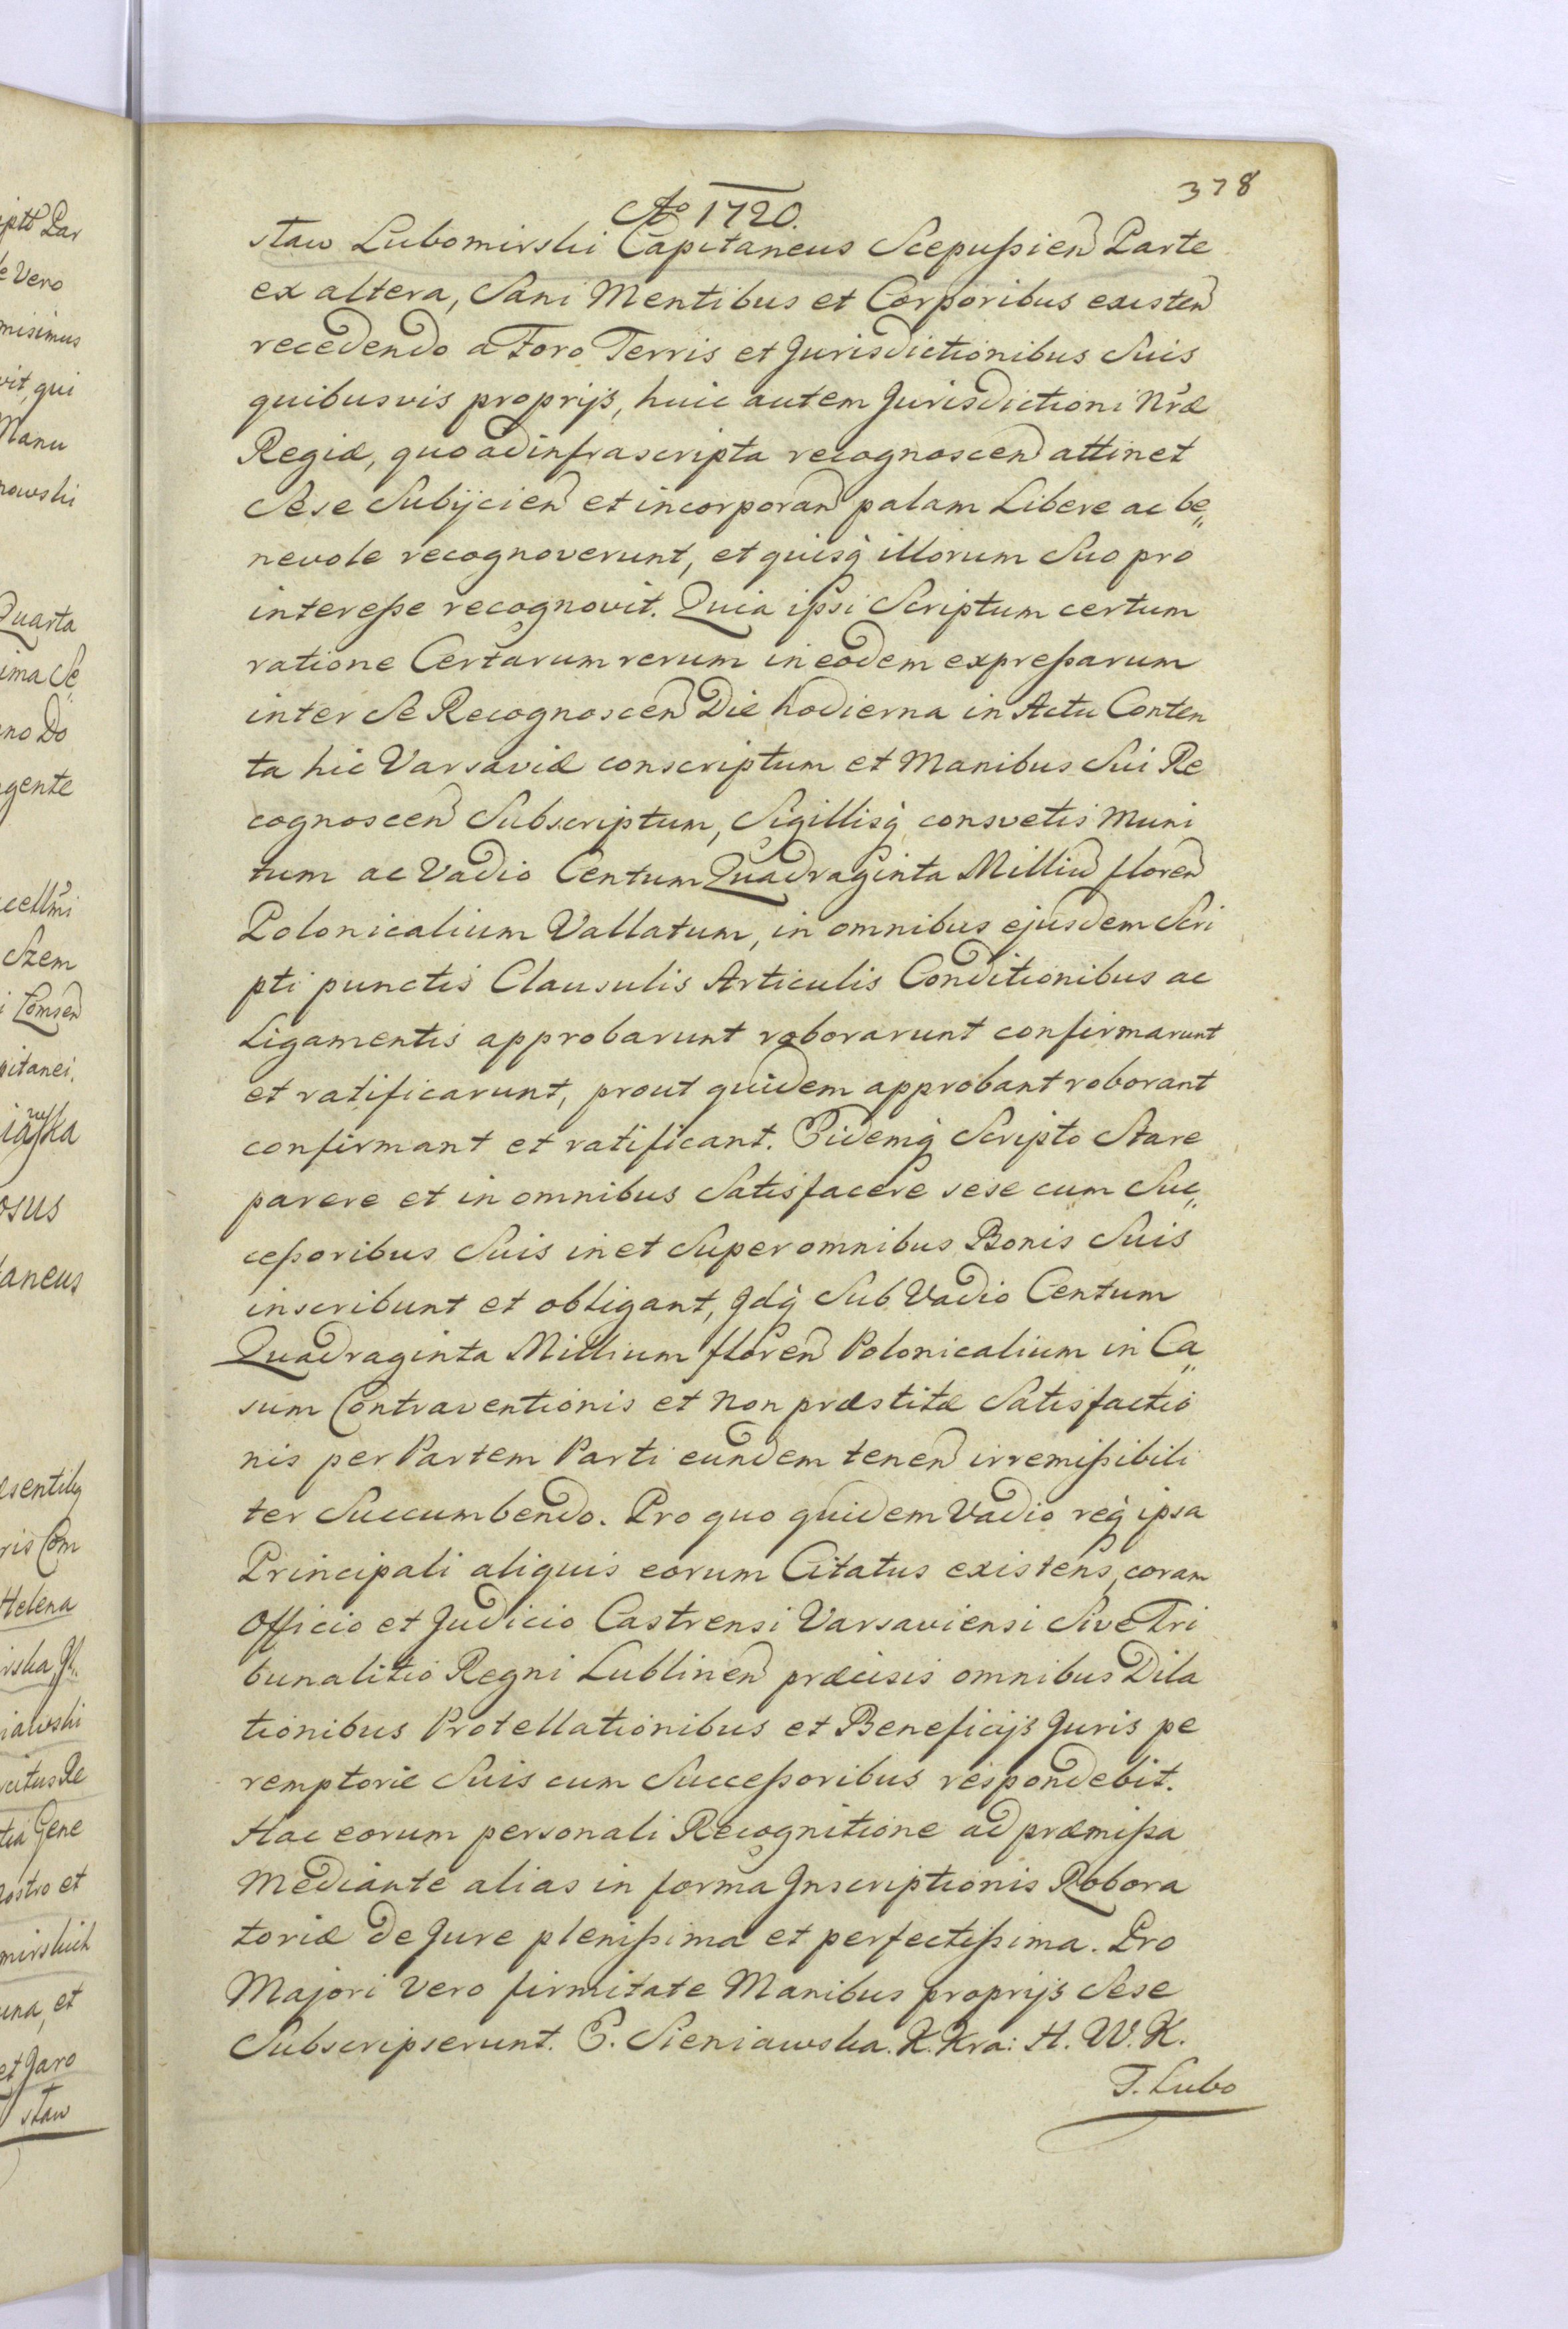 378
Ao 1720.
staw Lubomirski Capitaneus Scepußien Parte
ex altera, Sani Mentibus et Corporibus existen
recedendo a Foro Terris et Jurisdictionibus Suis
quibusvis proprijs, huic autem Jurisdictioni Nræ
Regiæ, quo ad infrascripta recognoscen attinet
Sese Subijcien et incorporan palam Libere ac be„
nevole recognoverunt, et quisq illorum Suo pro
intereße recognovit. Quia ipsi Scriptum certum
ratione Certarum rerum in eodem expreßarum
inter Se Recognoscen Die hodierna in Actu Conten
ta hic Varsaviæ conscriptum et Manibus Sui Re
cognoscen Subscriptum, Sigillisq consvetis Muni
tum ac Vadio Centum Quadraginta Milliu floren
Polonicalium Vallatum, in omnibus ejusdem Scri
pti punctis Clausulis Articulis Conditionibus ac
Ligamentis approbarunt roborarunt confirmarunt
et ratificarunt, prout quidem approbant roborant
confirmant et ratificant. Eidemq Scripto Stare
parere et in omnibus Satisfacere sese cum Suc„
ceßoribus Suis in et Super omnibus Bonis Suis
inscribunt et obligant, Idq Sub Vadio Centum
Quadraginta Millium floren Polonicalium in Ca„
sum Contraventionis et non præstitæ Satisfactio
nis per Partem Parti eundem tenen irremißibili
ter Succumbendo. Pro quo quidem Vadio req ipsa
Principali aliquis eorum Citatus existens, coram
Officio et Judicio Castrensi Varsaviensi Sive Tri
bunalitio Regni Lublinen præcisis omnibus Dila
tionibus Protellationibus et Beneficijs Juris pe
remptorie Suis cum Succeßoribus respondebit.
Hac eorum personali Recognitione ad præmißa
Mediante alias in forma Inscriptionis Robora
toriæ de Jure plenißima et perfectißima. Pro
Majori vero firmitate Manibus proprijs Sese
Subscripserunt. E. Sieniawska. K. Kra: H. W. K.
T. Lubo